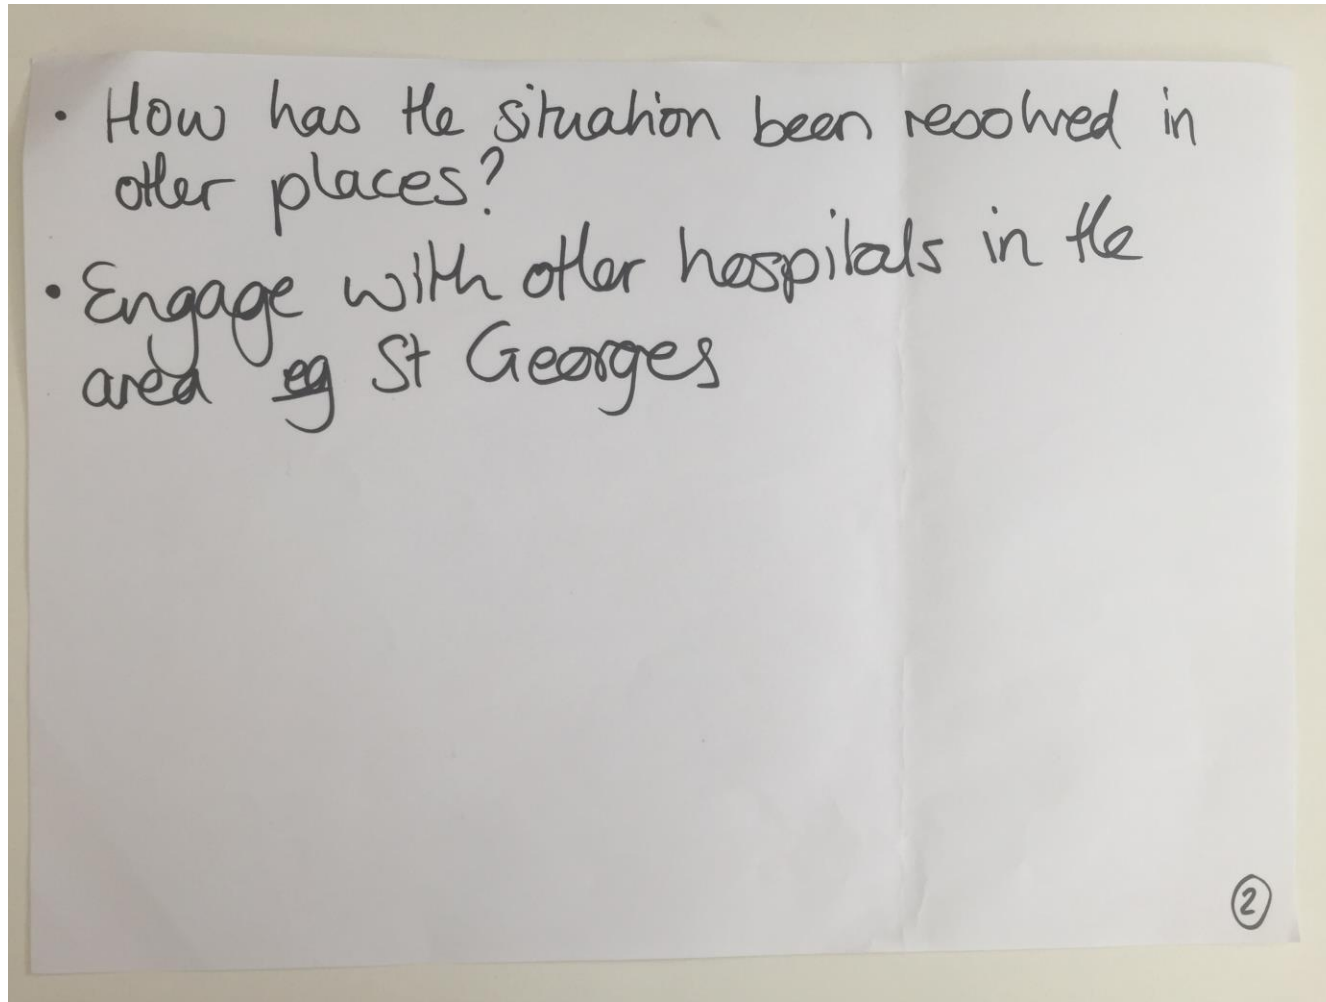 · How has the situation been resolved in
other places?
· Engage with other hospitals in the
area eg St Georges
2